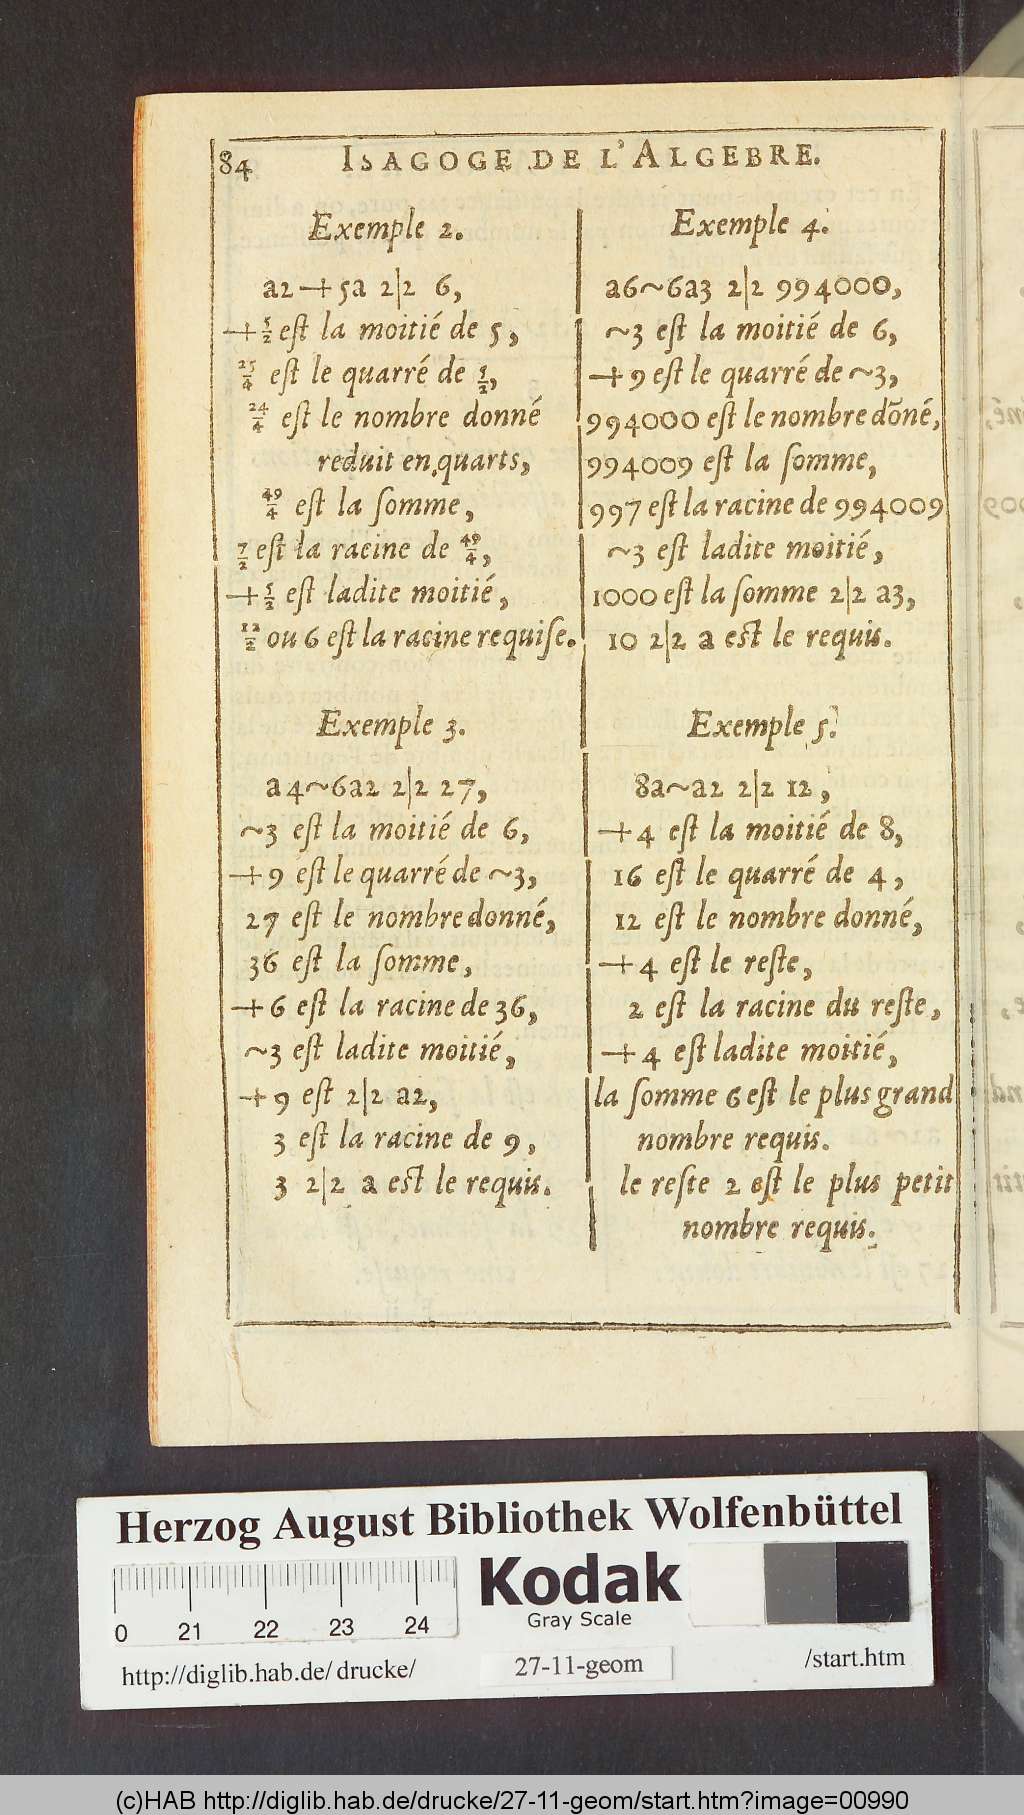 84 ISAGOGE DE L'ALGEBRE.
Exemple 2.
a2+5a 2|2 6,
+5/2 est la moitié de 5,
25/4 est le quarré de 5/2,
24/4 est le nombre donné
reduit en quarts,
49/4 est la somme,
7/2 est la racine de 49/4,
+5/2 est ladite moitié,
12/2 ou 6 est la racine requise.
Exemple 3.
a4~6a2 2|2 27,
~3 est la moitié de 6,
+9 est le quarré de ~3,
27 est le nombre donné,
36 est la somme,
+6 est la racine de 36,
~3 est ladite moitié,
+9 est 2|2 a2,
3 est la racine de 9,
3 2|2 a est le requis.
Exemple 4.
a6~6a3 2|2 994000,
~3 est la moitié de 6,
+9 est le quarré de ~3,
994000 est le nombre dōné,
994009 est la somme,
997 est la racine de 994009
~3 est ladite moitié,
1000 est la somme 2|2 a3,
10 2|2 a est le requis.
Exemple 5.
8a~a2 2|2 12,
+4 est la moitié de 8,
16 est le quarré de 4,
12 est le nombre donné,
+4 est le reste,
2 est la racine du reste,
+4 est ladite moitié,
la somme 6 est le plus grand
nombre requis.
le reste 2 est le plus petit
nombre requis.
Herzog August Bibliothek Wolfenbüttel
Kodak
Gray Scale
0 21 22 23 24
http://diglib.hab.de/drucke/ 27-11-geom /start.htm
(c)HAB http://diglib.hab.de/drucke/27-11-geom/start.htm?image=00990